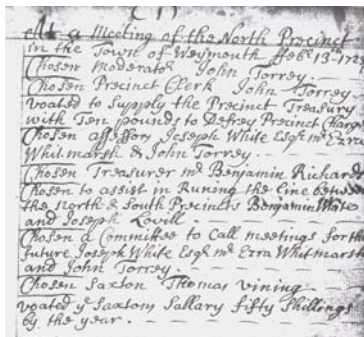 (1)
At a Meeting of the North Precinct
in the Town of Weymouth ffebʸ 13ᵗʰ 172
Chosen Moderatoʳ John Torrey.
Chosen Precinct Clerk John Torrey
voated to Supply the Precinct Treasury
with Ten pounds to Defrey Precinct Charge
Chosen assessors Joseph White Esqʳ mʳ Ezra
Whitmarsh & John Torrey.
Chosen Treasurer mʳ Benjamin Richards
Chosen to assist in Runing the Line betwen
the North & South Precincts Benjamin White
and Joseph Lovill.
Chosen a Committee to Call meetings for the
future Joseph White Esqʳ mʳ Ezra Whitmarsh
and John Torrey
Chosen Saxton Thomas vining
voated yᵉ Saxtons Sallary fifty Shillongs
by the year.